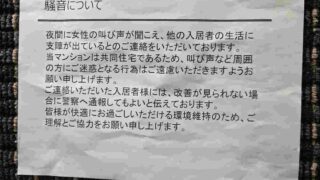 騒音について
夜間に女性の叫び声が聞こえ、他の入居者の生活に
支障が出ているとのご連絡をいただいております。
当マンションは共同住宅であるため、叫び声など周囲
の方にご迷惑となる行為はご遠慮いただきますようお
願い申し上げます。
ご連絡いただいた入居者様には、改善が見られない場
合に警察へ通報してもよいと伝えております。
皆様が快適にお過ごしいただける環境維持のため、ご
理解とご協力をお願い申し上げます。